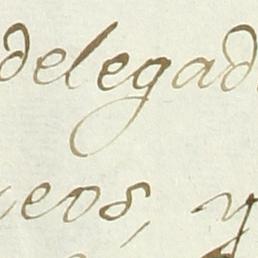 delegad
eos, y